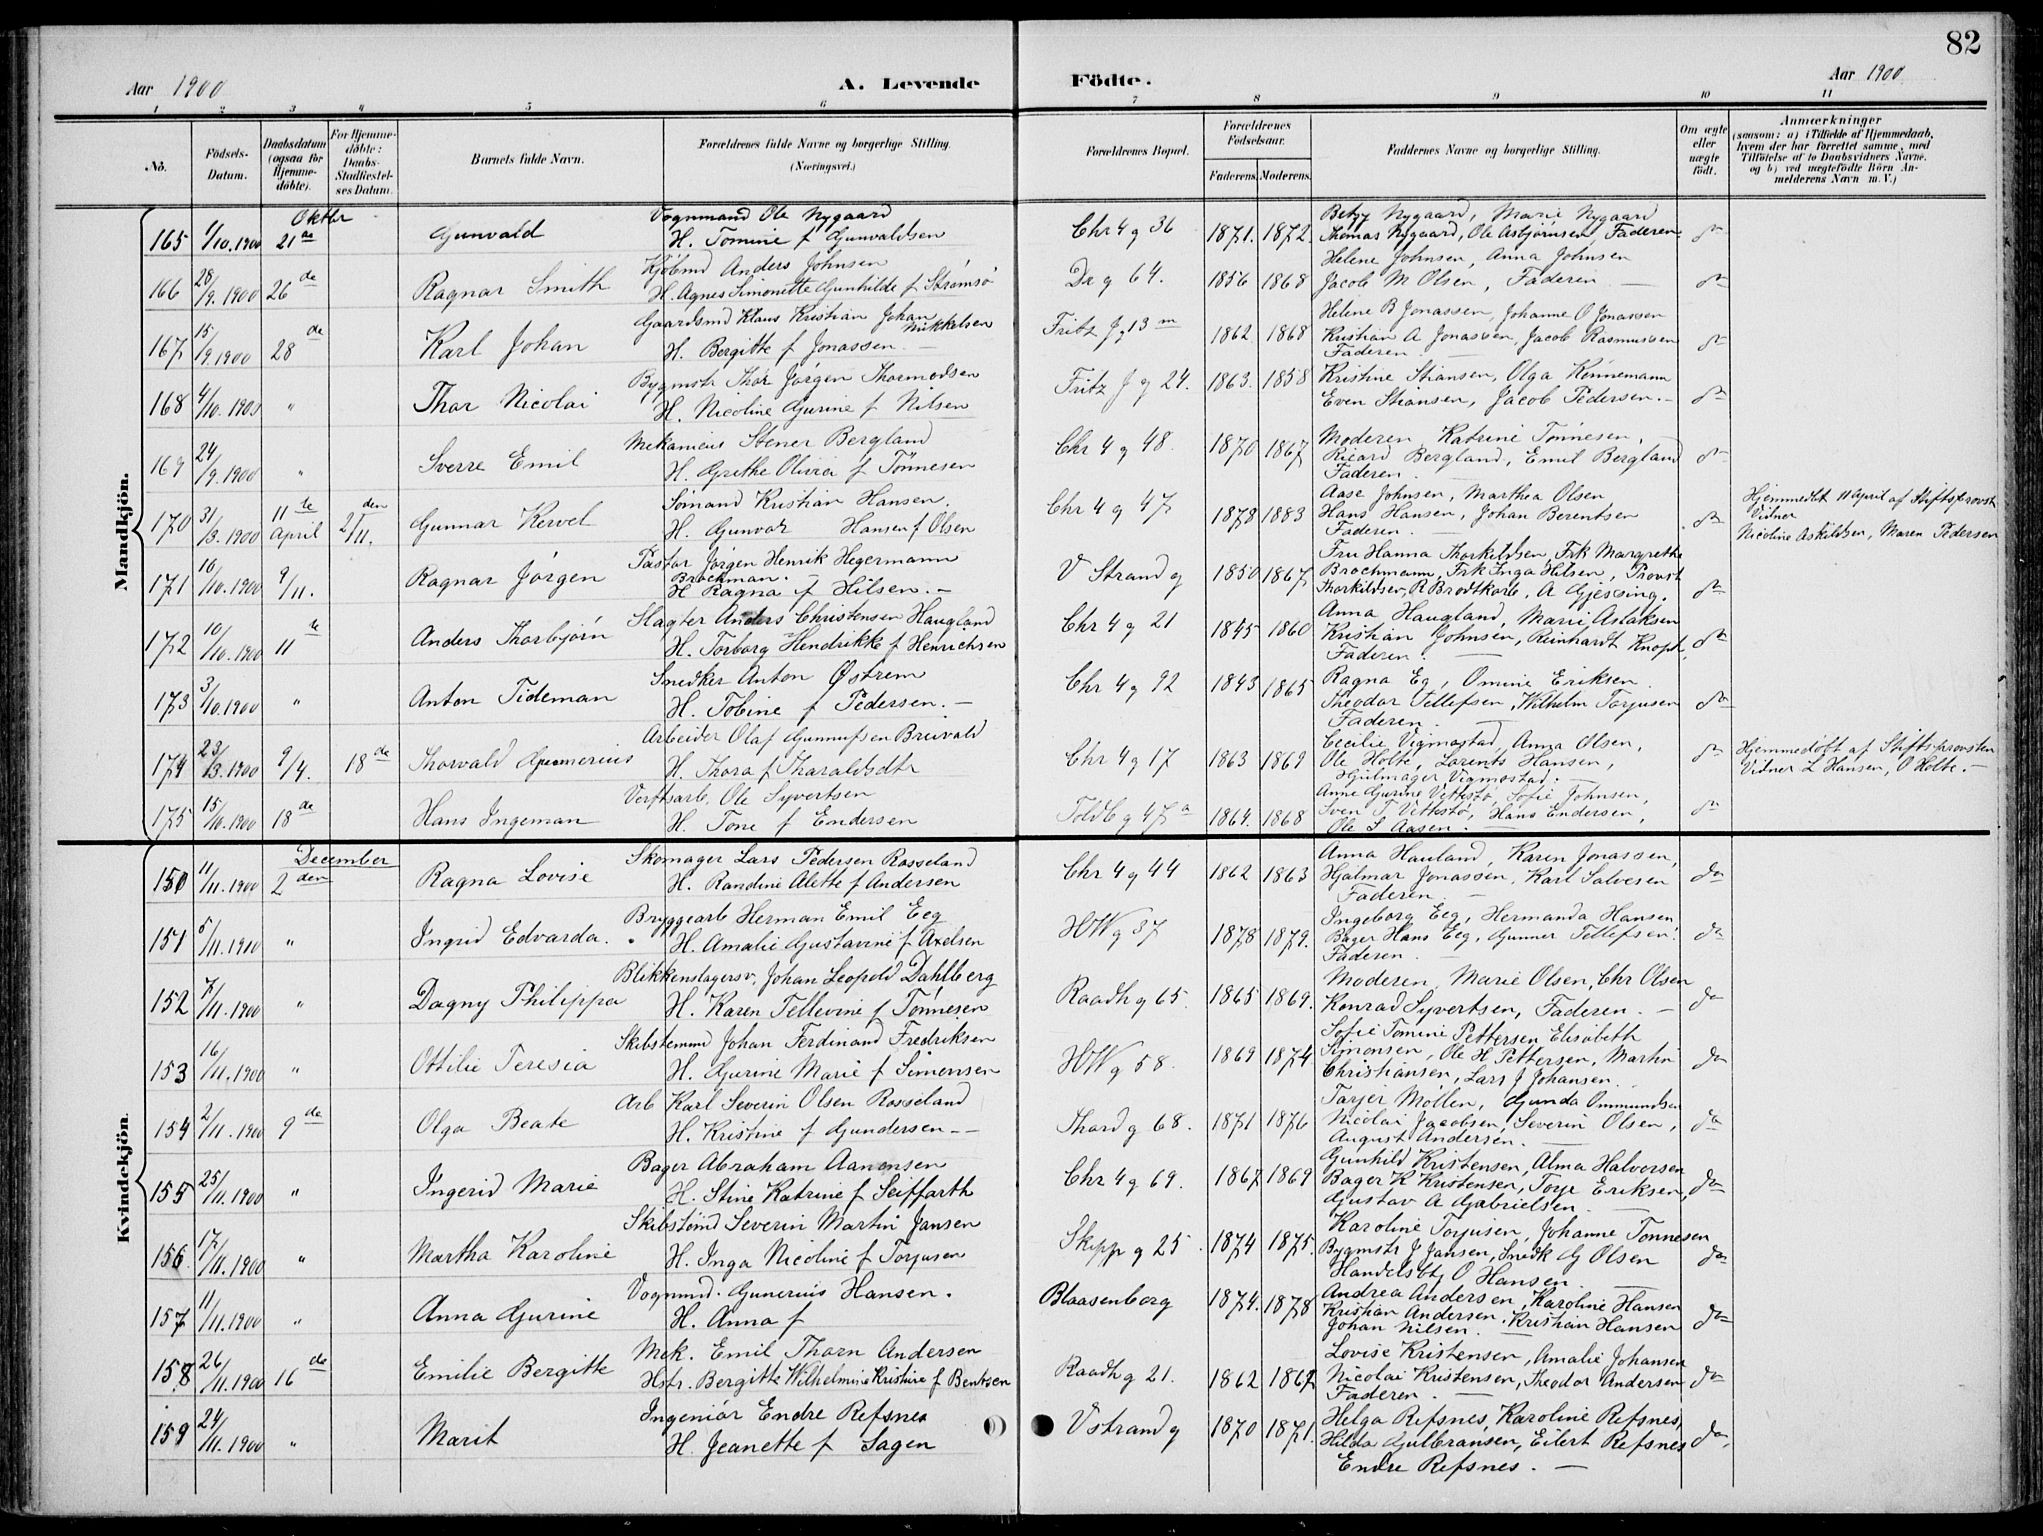 82
Aar 1900
A. Levende Födte.
Aar 1900
1 2 3 4 5 6 7 8 9 10 11
No.
Födsels-Datum.
Daabsdatum (ogsaa for Hjemme-döbte).
For Hjemme-döbte: Daabs-Stadfæstel-ses Datum.
Barnets fulde Navn.
Forældrenes fulde Navne og borgerlige Stilling. (Næringsvei.)
Forældrenes Bopæl.
Forældrenes Födselsaar.
Faderens. Moderens.
Faddernes Navne og borgerlige Stilling.
Om ægte eller uægte födt.
Anmærkninger
(saasom: a) i Tilfælde af Hjemmedaab, hvem der har forrettet samme, med Tilföielse af to Daabsvidners Navne, og b) ved uægtefödte Börn An-melderens Navn m. V.)
Mandkjön.
Oktbr
Vognmand Ole Nygaard
Betzy Nygaard, Marie Nygaard
165 1/10.1900 21de Gunvald H. Tomine f Gunvaldsen Chr 4 g 36 1871. 1872. Thomas Nygaard, Ole Asbjørnsen, Faderen
Kjøbmd Anders Johnsen
Helene Johnsen, Anna Johnsen
166 28/9.1900 26de Ragnar Smith H. Agnes Simonette Gunhilde f Strømsø Dr g 64. 1856 1868 Jacob M Olsen, Faderen
Gaardsmd Klaus Kristian Johan Mikkelsen
Helene B Jonassen, Johanne O Jonassen
167 15/9.1900 28de Karl Johan H. Bergitte f Jonassen. Fritz J g 13 m 1862 1868 Kristian A Jonassen, Jacob Rasmussen
Faderen.
Bygmstr Thor Jørgen Thormodsen
Kristine Stiansen, Olga Kønnemann
168 4/10.1900 " Thor Nicolai H. Nicoline Gurine f Nilsen Fritz J g 24. 1863. 1858 Even Stiansen, Jacob Pedersen.
Mekanicus Stener Bergland
Moderen, Katrine Tønnesen,
169 24/9.1900 " Sverre Emil H. Grethe Olivia f Tønnesen Chr 4 g 48 1870 1867 Ricard Bergland, Emil Bergland
Faderen
Sømand Kristian Hansen.
Aase Johnsen, Marthea Olsen
170 31/3.1900 11te April 2den/11. Gunnar Kervel H. Gunvor Hansen f Olsen Chr 4 g 47 1878 1883 Hans Hansen, Johan Berentsen
Faderen.
Hjemmedøbt 11 April af Stiftsprovst
Vidner
Nicoline Askildsen, Maren Pedersen
Pastor Jørgen Henrik Hegermann Brochman.
Fru Hanna Thorkildsen, Frk Margrethe
171 16/10.1900 9/11. Ragnar Jørgen H Ragna f Hilsen. V Strand g 1850 1867 Brochmann, Frk Inga Hilsen, Provst
Thorkildsen, R Brodtkorb, A Gjessing.
Slagter Anders Christensen Haugland
Anna Haugland, Marie Aslaksen
172 10/10.1900 11te Anders Thorbjørn H. Torborg Hendrikke f Henrichsen Chr 4 g 21 1845 1860 Kristian Johnsen, Reinhardt Knoph,
Faderen.
Snedker Anton Østrem
Ragna Eg, Omine Eriksen
173 3/10.1900 " Anton Tideman H. Tobine f Pedersen. Chr 4 g 92 1843 1865 Theodor Tellefsen, Wilhelm Torjusen
Faderen.
Arbeider Olaf Gunnufsen Breivald
Cecilie Vigmostad, Anna Olsen,
174 23/3.1900 9/4. 18de Thorvald Gunnerius H. Thora f Tharaldsdtr Chr 4 g 17 1863 1869 Ole Holte, Lorents Hansen,
Hjulmager Vigmostad.
Hjemmedøbt af Stiftsprovsten
Vidner L Hansen, O Holte.
Verftsarb. Ole Syvertsen
Anne Gurine Vittestø, Sofie Johnsen,
175 15/10.1900 18de Hans Ingeman H. Tone f Endersen Toldb g 47a 1864. 1868 Sven T Vittestø, Hans Endersen,
Ole S Aasen.
Kvindekjön
December
Skomager Lars Pedersen Rosseland
Anna Hauland, Karen Jonassen,
150 11/11.1900 2den Ragna Lovise H. Randine Alette f Andersen Chr 4 g 44 1862 1863 Hjalmar Jonassen, Karl Salvesen
Faderen.
Bryggearb Herman Emil Eeg
Ingeborg Eeg, Hermanda Hansen
151 5/11.1900 " Ingrid Edvarda. H. Amalie Gustavine f Axelsen HW g 37 1878 1879. Bager Hans Eeg, Gunner Tellefsen.
Faderen.
Blikkenslagersv. Johan Leopold Dahlberg
Moderen, Marie Olsen, Chr Olsen
152 7/11.1900 " Dagny Philippa H. Karen Tellevine f Tønnesen Raadh g 65. 1865 1869. Konrad Syvertsen, Faderen.
Skibstømmd Johan Ferdinand Fredriksen
Sofie Tomine Pettersen Elisabeth
153 16/11.1900 " Ottilie Teresia H. Gurine Marie f Simonsen HW g 58. 1869 1874 Simonsen, Ole H Pettersen, Martin
Christiansen, Lars J Johansen.
Arb Karl Severin Olsen Rosseland
Tarjer Møllen, Gunda Ommundsen
154 2/11.1900 9de Olga Beate H. Kristine f Gundersen Thord g 68. 1871 1876 Nicolai Jacobsen, Severin Olsen,
August Andersen.
Bager Abraham Aanonsen
Gunhild Kristensen, Alma Halvorsen
155 25/11.1900 " Ingerid Marie H. Stine Katrine f Seiffarth Chr 4 g 69. 1867 1869 Bager K Kristensen, Torje Eriksen,
Gustav A Gabrielsen.
Skibstømd Severin Martin Jansen
Karoline Torjusen, Johanne Tønnesen
156. 17/11.1900 " Martha Karoline H. Inga Nicoline f Torjusen Skipp g 25. 1874 1875. Bygmstr J Jansen, Snedk G Olsen
Handelsbtj O Hansen.
Vognmd. Gunerius Hansen.
Andrea Andersen, Karoline Hansen
157 11/11.1900 " Anna Gurine H. Anna f Blaasenborg 1874. 1878 Kristian Andersen, Kristian Hansen
Johan Nilsen.
Mek. Emil Thorn Andersen
Lovise Kristensen, Amalie Johansen
158 26/11.1900 16de Emilie Bergitte Hstr. Bergitte Wilhelmine Kristine f Bentsen Raadh g 21. 1862 1867 Nicolai Kristensen, Theodor Andersen
Faderen.
Ingeniør Endre Refsnes
Helga Refsnes, Karoline Refsnes,
159 24/11.1900 " Marit H. Jeanette f Sagen V strand g 1870 1871. Hilda Gulbransen, Eilert Refsnes
Endre Refsnes.